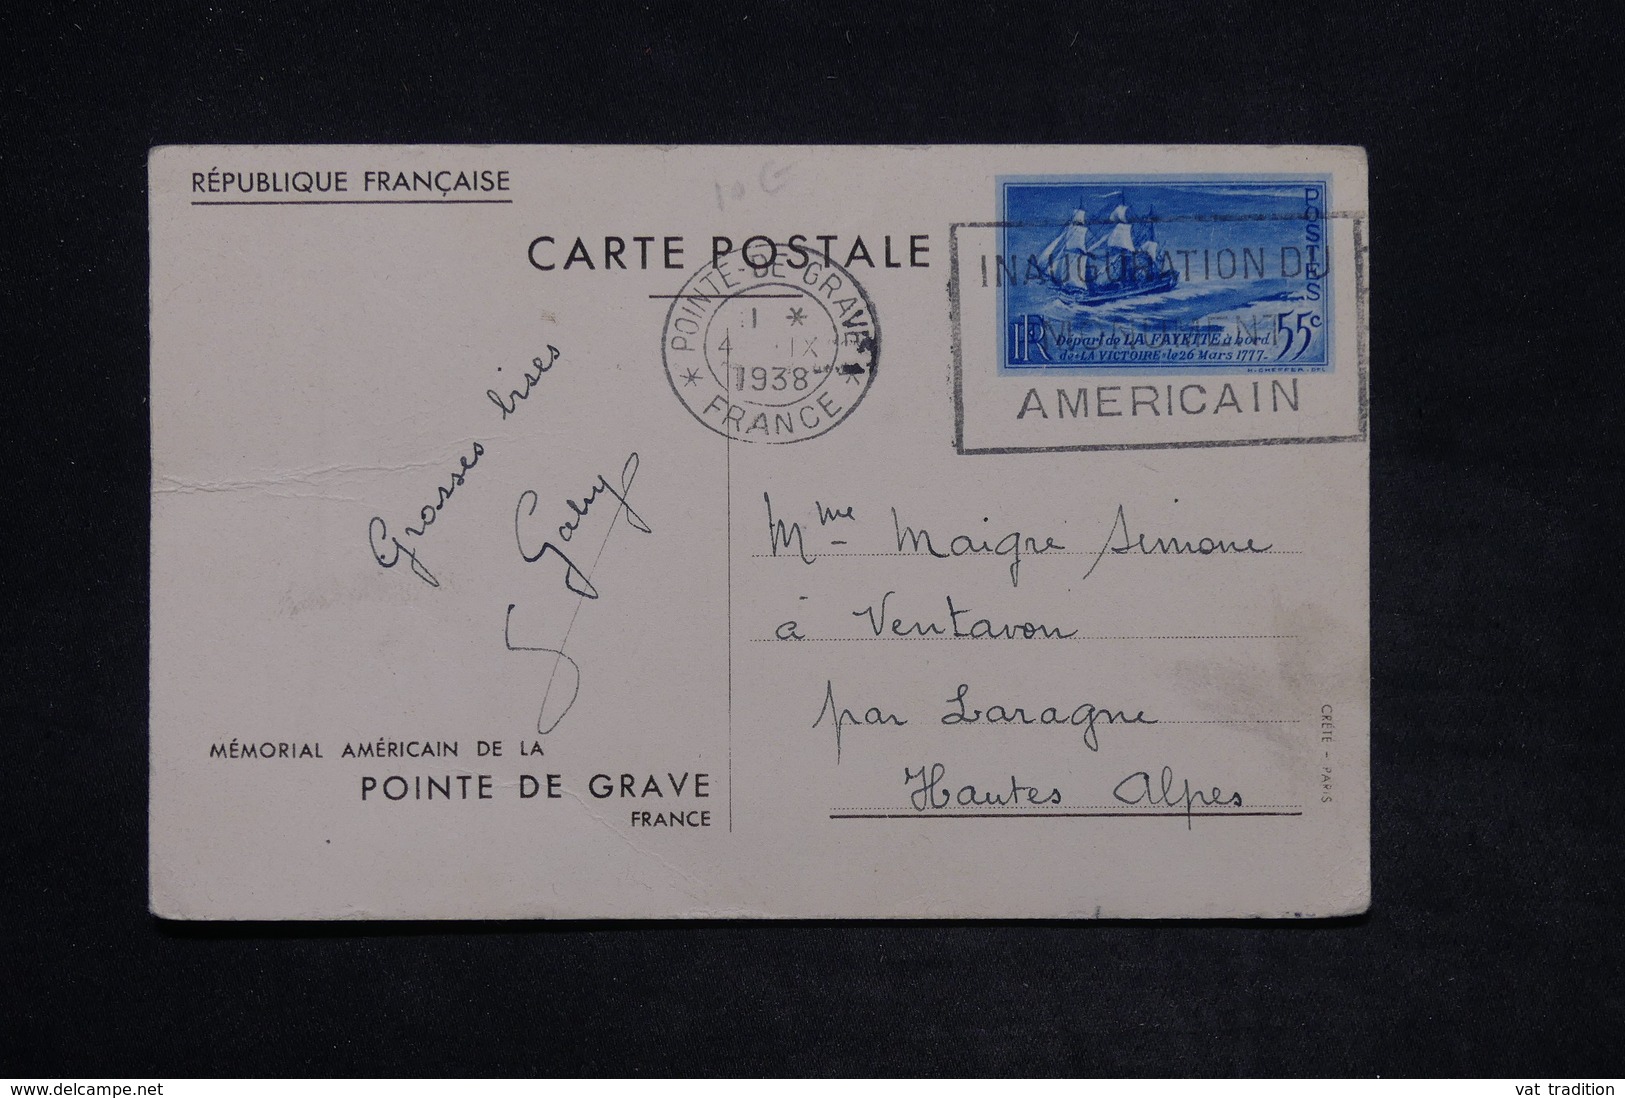 RÉPUBLIQUE FRANÇAISE
10 €
CARTE POSTALE
POSTES
RF
55c
Départ de LA FAYETTE à bord
de "LA VICTOIRE" le 26 Mars 1777.
H. CHEFFER. DEL
POINTE-DE-GRAVE
4 IX
1938
* FRANCE *
INAUGURATION DU
MONUMENT
AMERICAIN
Grosses bises
Gaby
Mme Maigre Simone
à Ventavon
par Laragne
Hautes Alpes
MÉMORIAL AMÉRICAIN DE LA
POINTE DE GRAVE
FRANCE
CRÉTÉ - PARIS
www.delcampe.net
vat tradition